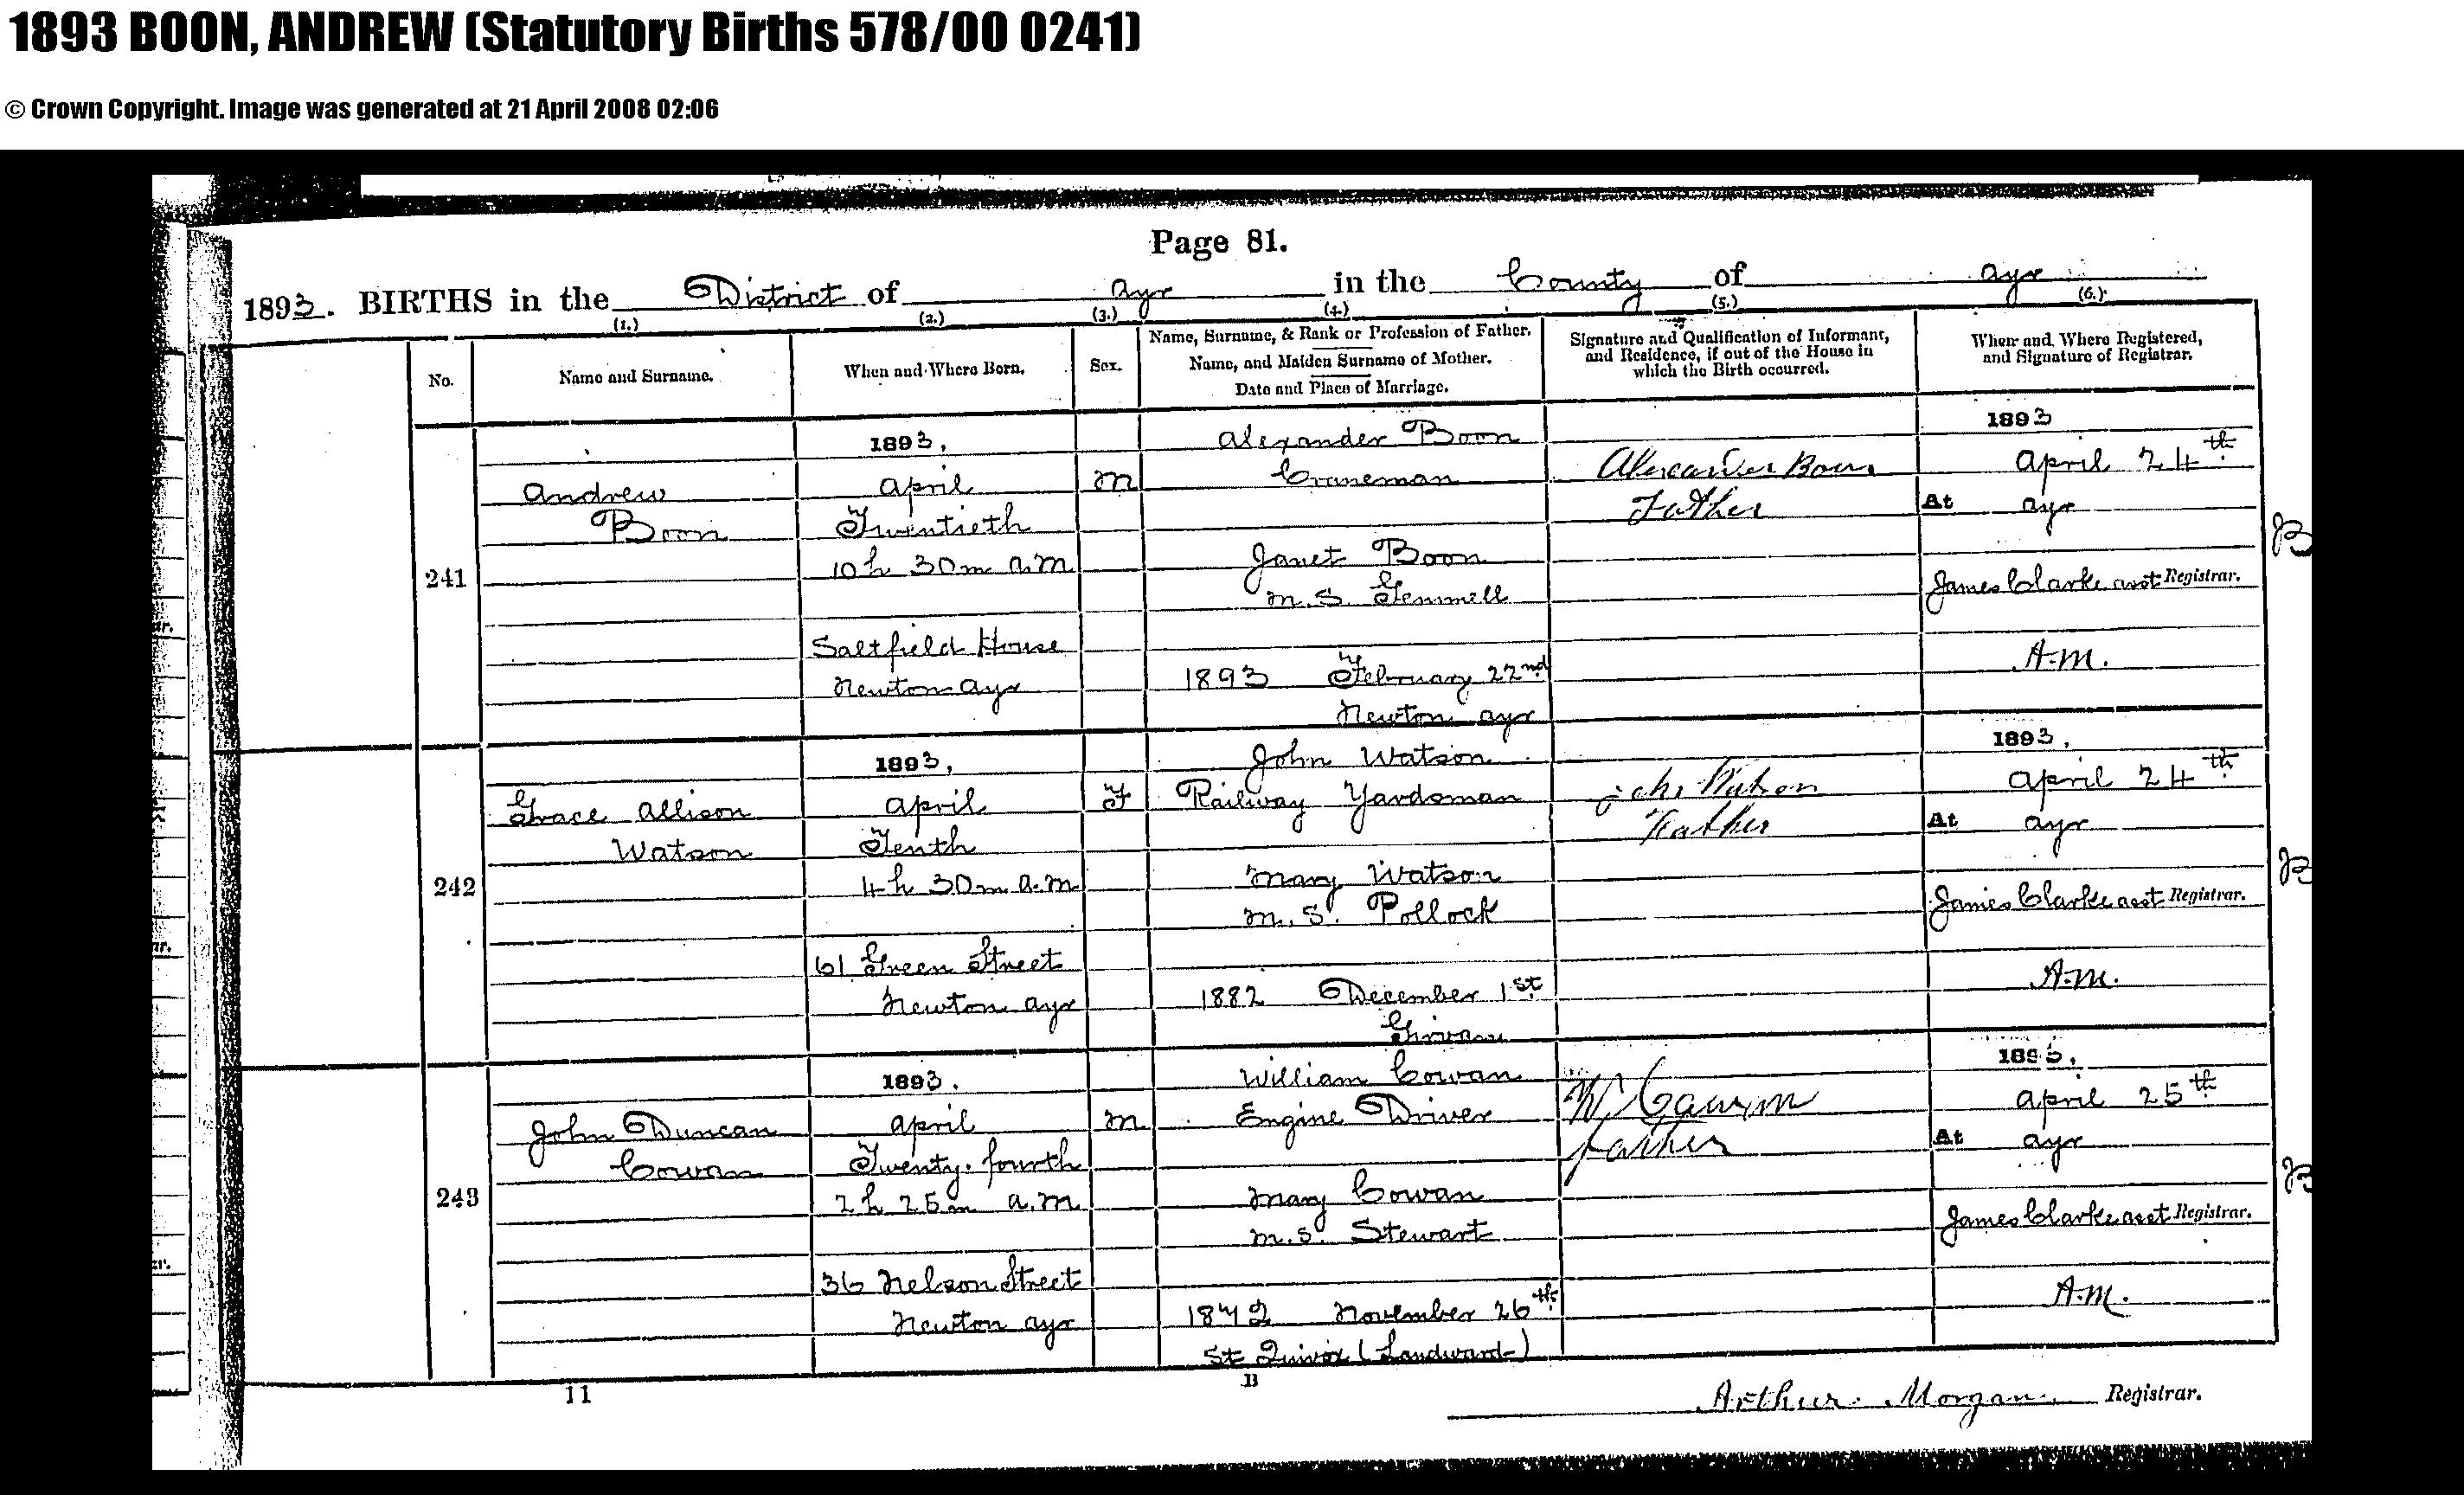 1893 BOON, ANDREW (Statutory Births 578/00 0241)
© Crown Copyright. Image was generated at 21 April 2008 02:06
Page 81.
1893. BIRTHS in the District of Ayr in the County of Ayr
(1.) (2.) (3.) (4.) (5.) (6.)
No.
Name and Surname.
When and Where Born.
Sex.
Name, Surname, & Rank or Profession of Father.
Name, and Maiden Surname of Mother.
Date and Place of Marriage.
Signature and Qualification of Informant,
and Residence, if out of the House in
which the Birth occurred.
When and Where Registered,
and Signature of Registrar.
241
Andrew
Boon
1893,
April
Twentieth
10 h 30 m a.m
Saltfield House
Newton Ayr
M
Alexander Boon
Craneman
Janet Boon
m.s. Gemmell
1893 February 22nd
Newton Ayr
Alexander Boon
Father
1893
April 24th
At Ayr
James Clarke asst Registrar.
A.M.
242
Grace Allison
Watson
1893,
April
Tenth
4 h 30 m a.m
61 Green Street
Newton Ayr
F
John Watson
Railway Yardsman
Mary Watson
m.s. Pollock
1882 December 1st
Girvan
John Watson
Father
1893,
April 24th
At Ayr
James Clarke asst Registrar.
A.M.
243
John Duncan
Cowan
1893.
April
Twenty-fourth
2 h 25 m a.m
36 Nelson Street
Newton Ayr
M
William Cowan
Engine Driver
Mary Cowan
m.s. Stewart
November 26th
St Quivox (Landward)
Father
1893,
April 25th
At Ayr
James Clarke asst Registrar.
A.M.
11
B
Arthur Morgan Registrar.